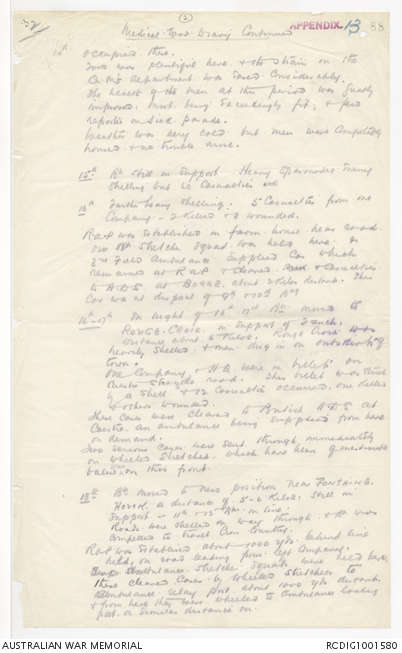 32
(2)
APPENDIX. 13. 88
Medical War Diary Continued
occupied there.
Food was plentiful here & the strain on the
Q.M's Department was eased considerably.
The health of the men at this period was greatly
improved most being exceedingly fit, & few
reported on Sick parade.
Weather was very cold but men were comfortably
housed & no trouble arose.
15th Bn still in Support. Heavy
Shelling but no Casualties
16th Further heavy shelling. 5 Casualties from one
Company - 2 killed & 3 wounded.
R.A.P. was established in farm house near road.
One Stretcher Squad was held here.
3rd Field Ambulance supplied Car which
remained at R.A.P. & cleared Casualties
to A.D.S. at BORRE about 2 kilos distant. This
Car was at disposal of 9th & 10th Bns
16th-17th On night of 16th 17th Bn moved to
ROUGE CROIX in support of French.
Distance about 4 kilos. Rouge Croix was
heavily shelled & men dug in on outskirts of
town.
One Company & H.Q. were in billets on
road. This billet was struck
by a shell & 12 Casualties occurred, one killed
& others wounded.
These Cases were cleared to British A.D.S. at
Caestre an ambulance being supplied from here
on demand.
Two serious Cases were sent through immediately
on wheeled stretcher which have been of
value on this front.
18th Bn moved to new position near FONTAINE
HOUCK a distance of 5-6 kilos. Still in
Support - 11th & 12th Bns in line.
Roads were shelled on way through & Bn was
Compelled to travel Cross Country.
R.A.P. was established about 1000 yds behind line
held, on road leading from left Company.
Stretcher Squads were held here,
these cleared Cases by wheeled stretchers to
Ambulance relay post about 1000 yds distant.
& from here they were wheeled to Ambulance loading
post a similar distance on.
AUSTRALIAN WAR MEMORIAL
RCDIG1001580